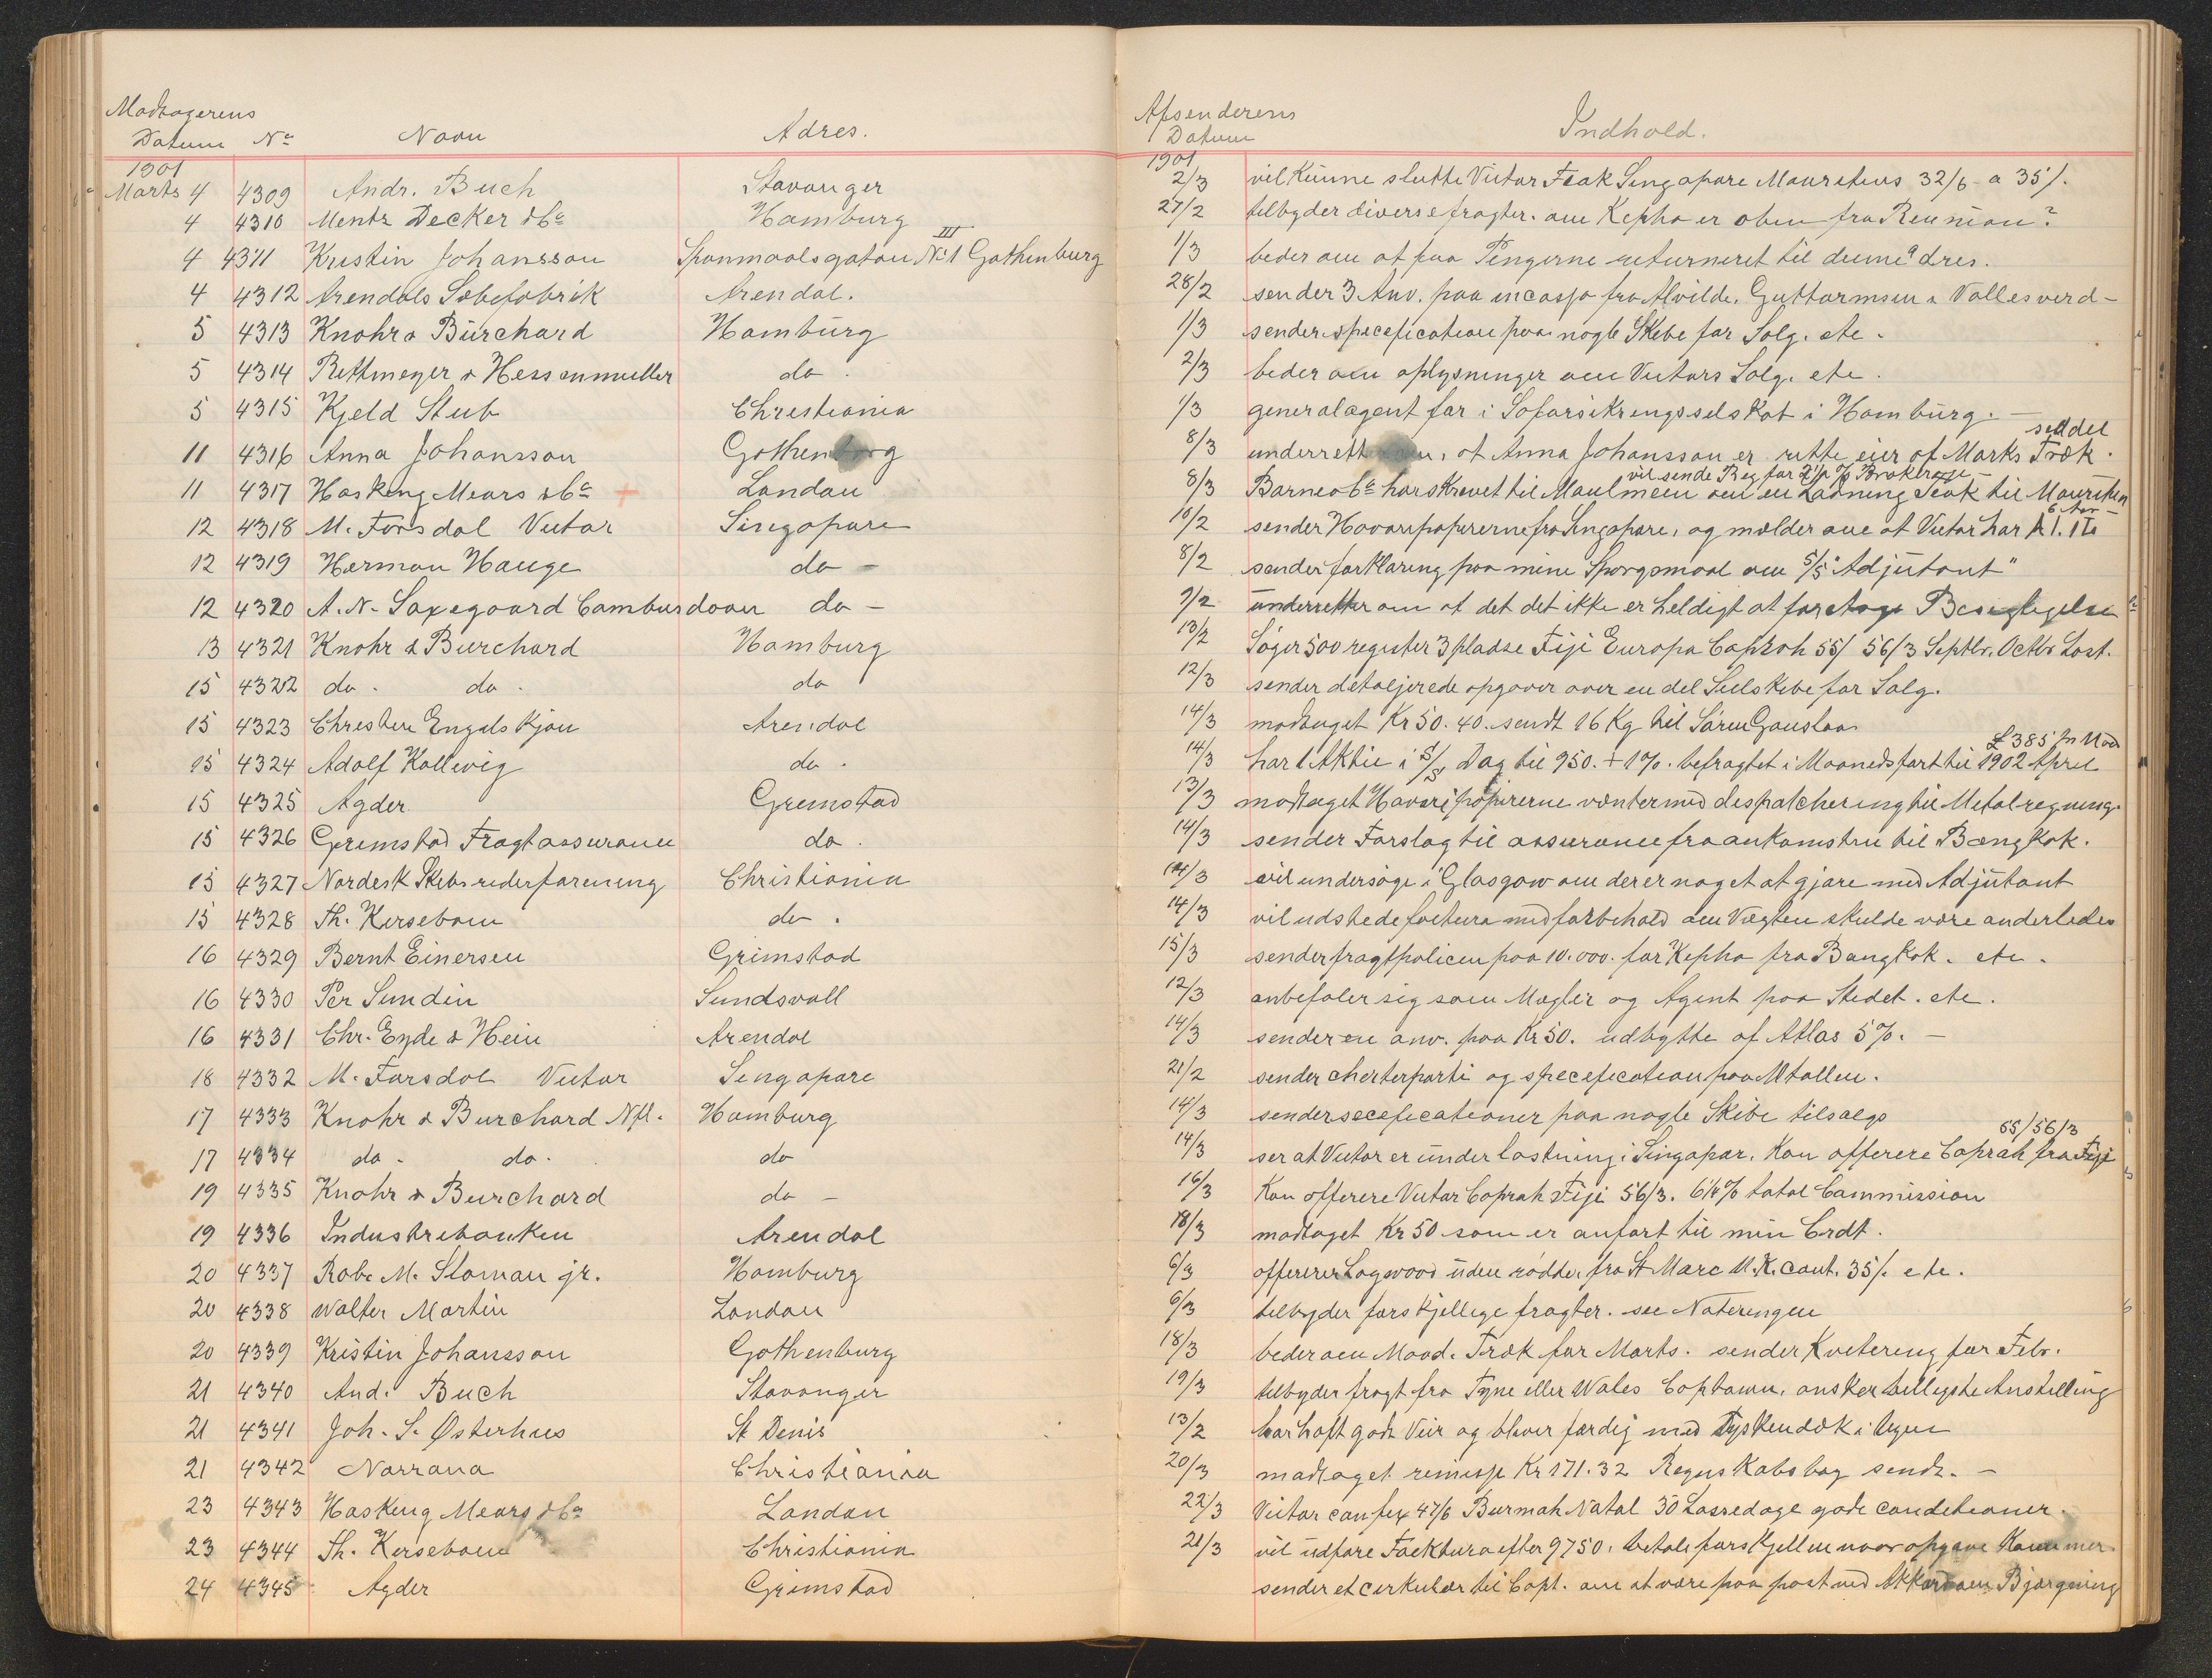 Modtagerens
Datum No Navn Adres.
1901
Marts 4 4309 Andr. Buch Stavanger
4 4310 Mentz Decker & Co Hamburg
4 4311 Kristin Johansson Spanmaalsgatan No 1 III Gothenburg
4 4312 Arendals Sæbefabrik Arendal.
5 4313 Knohr & Burchard Hamburg
5 4314 Rethmeyer & Hessenmuller do.
5 4315 Kjeld Stub Christiania
11 4316 Anna Johansson Gothenborg
11 4317 Hasking Mears & Co + London
12 4318 M. Försdal Victor Singapore
12 4319 Herman Hauge do -
12 4320 A. N. Saxegaard Cambusdoon do -
13 4321 Knohr & Burchard Hamburg
15 4322 do. do. do
15 4323 Christen Engelskjøn Arendal
15 4324 Adolf Kallevig do.
15 4325 Agder Grimstad
15 4326 Grimstad Fragtassurance do.
15 4327 Nordisk Skibsrederforening Christiania
15 4328 Th. Kierseboom do.
16 4329 Bernt Einersen Grimstad
16 4330 Per Sundin Sundsvall
16 4331 Chr. Eyde & Hein Arendal
18 4332 M. Forsdal Victor Singapore
17 4333 Knohr & Burchard Nfl. Hamburg
17 4334 do. do. do
19 4335 Knohr & Burchard do -
19 4336 Industribanken Arendal
20 4337 Rob. M. Sloman jr. Hamburg
20 4338 Walter Martin London
20 4339 Kristin Johansson Gothenburg
21 4340 And. Buch Stavanger
21 4341 Joh. S. Østerhus St Denis
21 4342 Norrøna Christiania
23 4343 Hasking Mears & Co London
23 4344 Th. Kierseboom Christiania
24 4345 Agder Grimstad
Afsenderens
Datum Indhold.
1901
2/3 vil kunne slutte Victor Teak Singapore Mauritius 32/6 a 35/.
27/2 tilbyder diverse fragter. om Kepha er oben fra Reunion?
1/3 beder om at faa Pengerne returneret til denne adres.
28/2 sender 3 Anv. paa incasso fra Alvilde, Guttormsen & Vallesverd-
1/3 sender specefication paa nogle Skibe for Salg. etc.
2/3 beder om oplysninger om Victors Salg. etc.
1/3 generalagent for i Søforsikringsselskab i Hamburg. -
8/3 underretter om, at Anna Johansson er rette eier af Marts Trækseddel.
vil sende Reg for 2½ % Brokerage -
8/3 Barne & Co har skrevet til Maulmein om en Ladning Teak til Mauritius
10/2 sender Havaripapirerne fra Singapore, og melder om at Victor har A 1. 1 TL 6 Aar -
8/2 sender forklaring paa mine Spørgsmaal om S/S "Adjutant"
9/2 underretter om at det det ikke er heldigt at foretage Besigtigelse
13/2 Søger 500 register 3 pladse Fiji Europa Coprah 55/ 56/3 Septbr, Octbr Last.
12/3 sender detaljerede opgaver over en del Seilskibe for Salg.
14/3 modtaget Kr 50. 40. sendt 16 Kg til Søren Gauslaa
14/3 har 1 Aktie i S/S Dag til 950. + 1%. befragtet i Maanedsfart til 1902 April £385 pr Maa
13/3 modtaget Havaripapirerne venter med despatchering til Metalregning.
14/3 sender Forslag til assurance fra ankomsten til Bangkok.
14/3 vil undersøge i Glasgow om der er noget at gjøre med Adjutant
14/3 vil udstede factura med forbehold om Vægten skulde være anderledes
15/3 sender fragtpolicen paa 10.000. for Kepha fra Bangkok. etc.
12/3 anbefaler sig som Mægler og Agent paa Stedet. etc.
14/3 sender en anv. paa Kr 50. udbytte af Atlas 5%. -
21/2 sender cherterparti og specefication paa Mtallen.
14/3 sender seceficationer paa nogle Skibe tilsalgs
14/3 ser at Victor er under lastning i Singapor. Kan offerere Coprah fra Fiji 55/ 56/3
16/3 Kan offerere Victor Coprah Fiji 56/3. 6¼% total Commission
18/3 modtaget Kr 50 som er anført til min Crdt.
6/3 offererer Logwood uden rødder, fra St Marc U.K. Cont. 35/. etc.
6/3 tilbyder forskjellige fragter. see Noteringen
18/3 beder om Maad. Træk for Marts. sender Kvitering for Febr.
19/3 tilbyder fragt fra Tyne eller Wales Captown, ønsker billigste Anstilling
13/2 har haft godt Veir og bliver færdig med Tyskendæk i Ugen
20/3 modtaget remisse Kr 171.32 Regnskabsbog sendt. -
22/3 Victor can fix 47/6 Burmah Natal 30 Lossedage gode conditioner.
21/3 vil udføre Facktura efter 9750. betale forskjellen naar opgave Kommer
sender et cirkulær til Capt. om at være paa post ved Akkord om Bjærgning